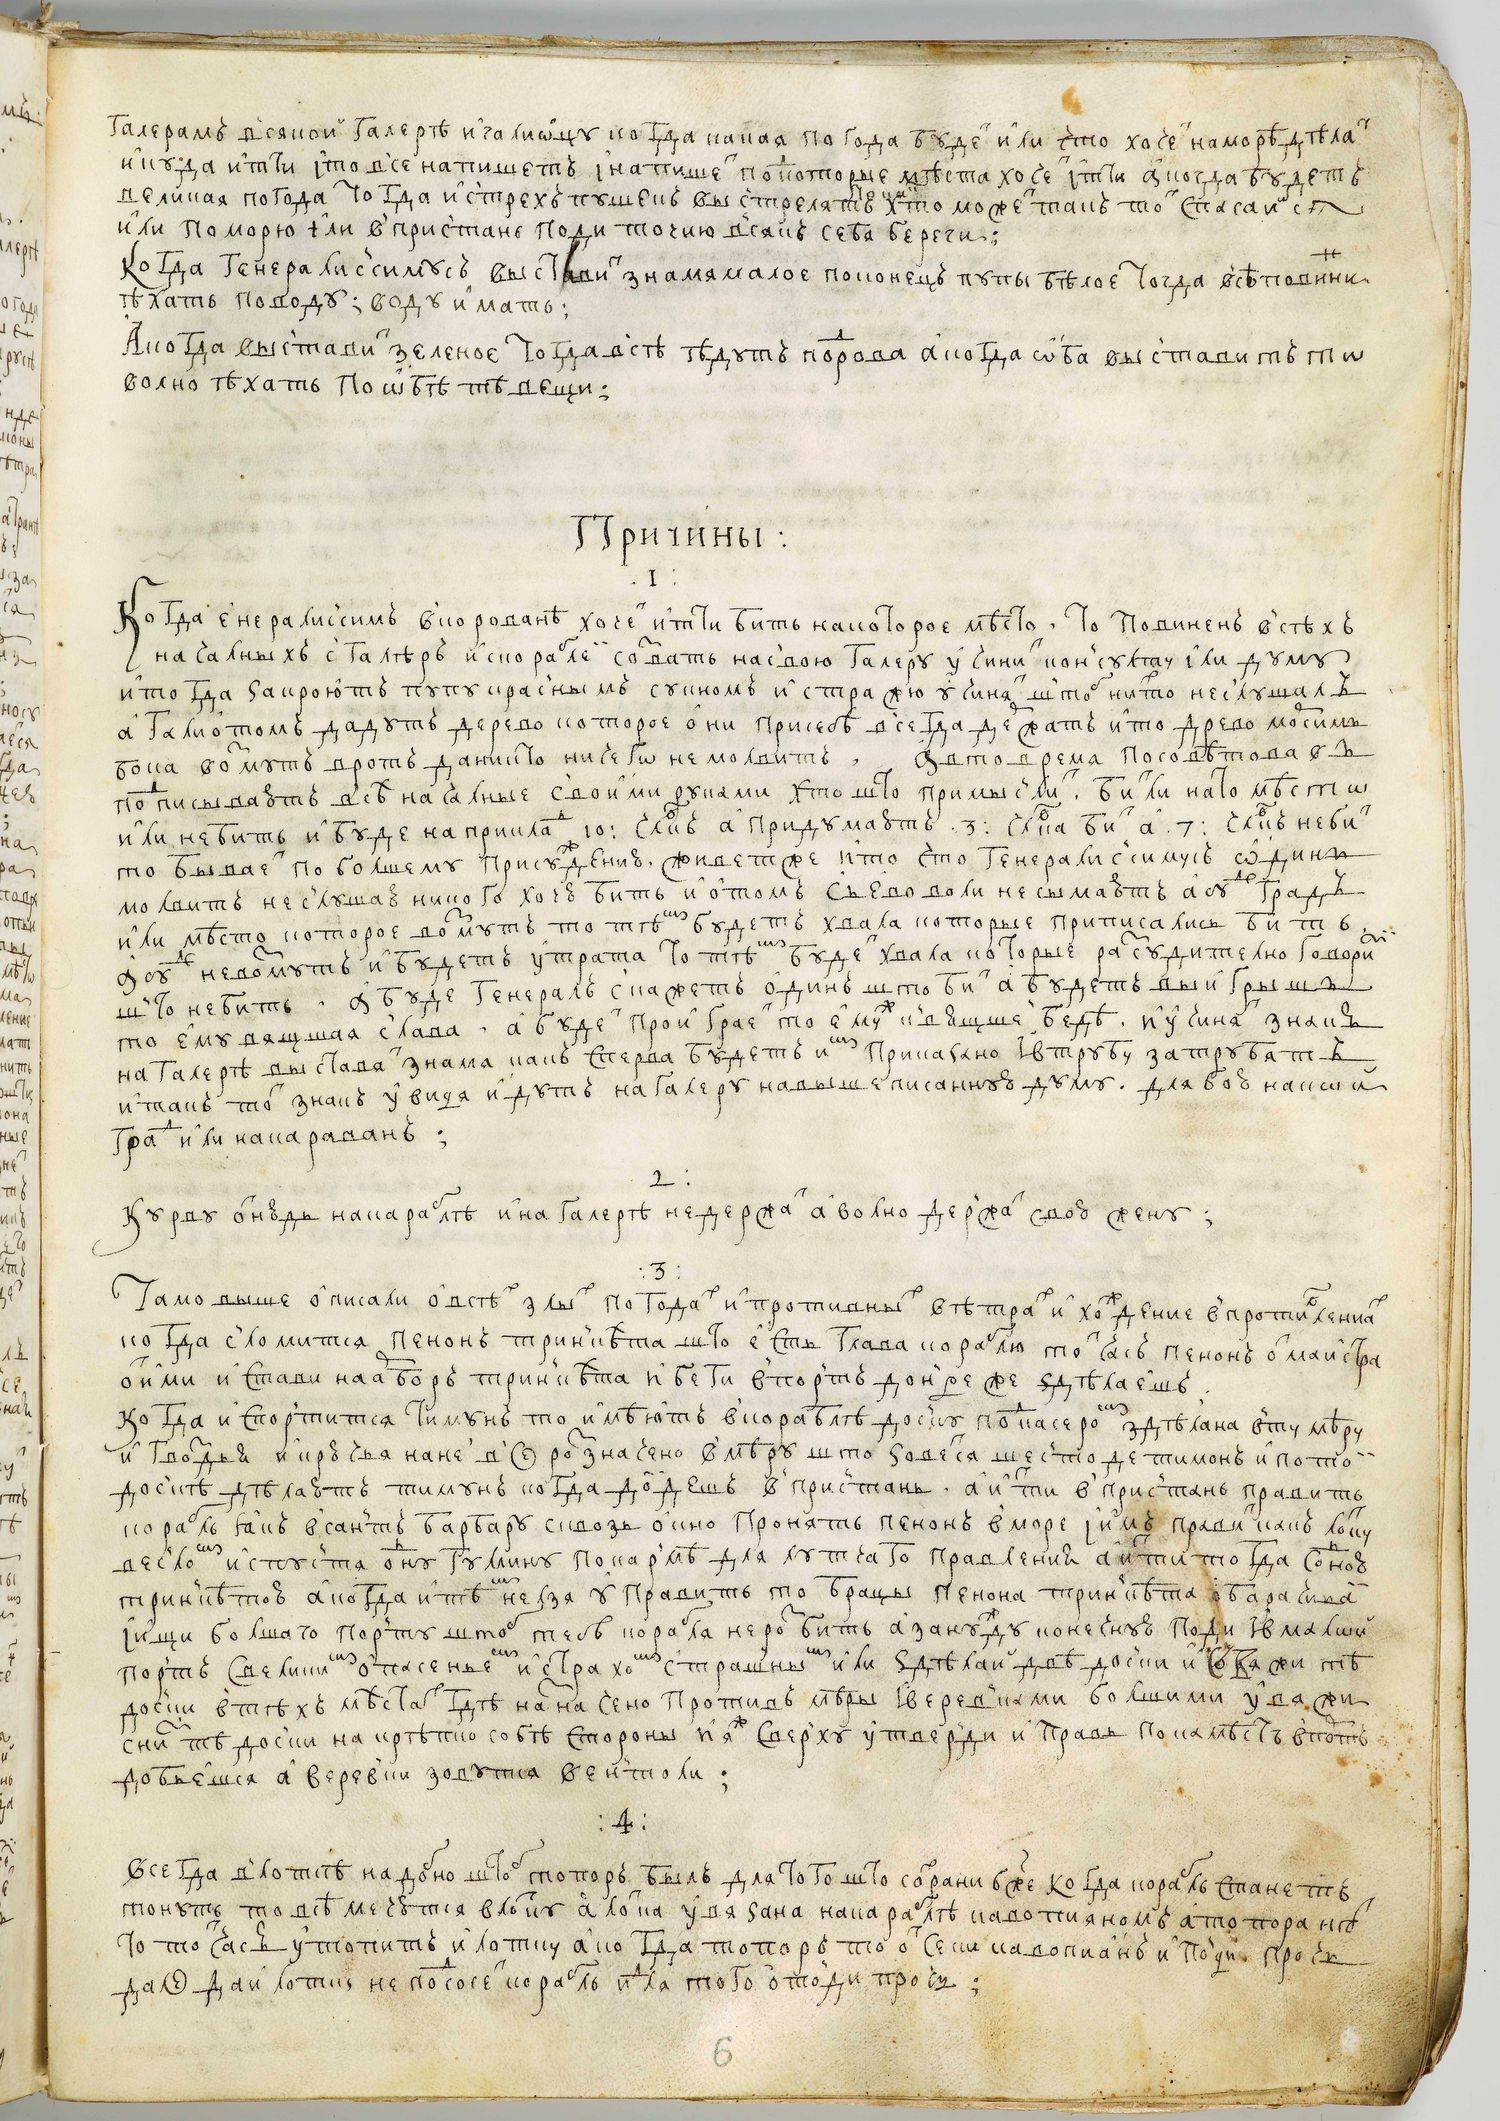 галерамъ всякой галерѣ и галиѡцу когда какая погода будеᵗ или что хочеᵗ наморѣ дѣлаᵗ
и куда итти ито все напишетъ і напишеᵗ покоторые мѣста хочеᵗ ітти а когда будетъ
великая погода тогда истрехъ пушекъ выстрелятъ хто можеᵗ такъ тоᵗ спасаися
или поморю или впристань поди точию всякъ себя береги;
Когда генералиссимусъ выставиᵗ знамя малое поконецъ пупы бѣлое тогда всѣ повинни
ѣхать поводу; воду имать;
А когда выставиᵗ зеленое тогда всѣ ѣдутъ подрова а когда ѡба выставитъ тѡ
волно ѣхать поѡбѣ тѣ вещи;
Причины:
.1:
Когда енералиссимъ вкорованѣ хочеᵗ итти бить накоторое мѣсто. то повиненъ всѣхъ
началныхъ сгалѣръ искораблеи созвать насвою галеру учиниᵗ консулту или думу
и тогда закроютъ пупу краснымъ сукномъ и стражю учиняᵗ штоб нихто неслушалъ
а галиотомъ дадутъ дерево которое они присебѣ всегда держать ито древо мочимъ
бока возмутъ вротъ даништо ничегѡ немолвитъ. а вто время посовѣтовавъ
подписываютъ всѣ началные своими руками хто што примыслиᵗ. били на то мѣстѡ
или небить и буде наприклаᵈ 10: члвкъ а придумаютъ .3: члвка биᵗ а .7: члвкъ небиᵗ
то бываеᵗ поболшему присуждению. живетже ито что генералиссимусъ ѡдинъ
молвитъ не слушаю никого хочю бить и отомъ съево воли несымаютъ а буде градъ
или мѣсто которое возмутъ то тѣм будетъ хвала которые приписались бить
а буде невозмутъ и будетъ утрата то тѣм будеᵗ хвала которые разсудително говорили
што небить. а буде генералъ скажетъ одинъ што биᵗ а будетъ выигрышъ
то ему вящшая слава. а будеᵗ проиграеᵗ то ему ж и вящше бедѣ. и учиняᵗ знакъ
на галерѣ выставяᵗ знамя какъ сперва будетъ им приказано ивтрубу затрубятъ
и такъ тоᵗ знакъ увидя идутъ на галеру навышеписанную думу. для бою накои
граᵈ или накараванъ;
2:
Курву онюдь накараблѣ и на галерѣ недержаᵗ а волно держаᵗ свою жену;
:3:
Тамо выше описали о всѣх злых погодах и противных вѣтрах и хождение впротивлениях
когда сломится пенонъ тринкѣта што есть глава кораблю тоᵗчасъ пенонъ отмаистра
отними и стави на арборъ тринкѣта и беги впортъ донъдеже здѣлаешъ.
Когда испортится тимунъ то имѣютъ вкораблѣ доску подкасером здѣлана вту мѣру
и гвоздьи и крючья нане все рознзначено вмѣру што зовется шестоде тимонъ и потои
доскѣ дѣлаютъ тимунъ когда доидешъ впристань. а итти впристань править
корабль какъ всантъ барбару сквозь окно пронять пенонъ вморе і имъ правиᵗ какъ лопу
весломъ и спустя ону гумину покармѣ для лутчаго правлении а итти тогда соною
тринкѣтою а когда и тѣм нелзя управить то брацы пенона тринкѣта обарачиваи
і ищи болшаго порту штоб тебѣ корабля неразбить а занужду конечную поди ивмалыи
портъ свеликимъ опасеньем и страхом страшным или здѣлаи двѣ доски и свяжи тѣ
доски втѣхъ мѣстах гдѣ назначено противъ мѣры иверевками болшими увяжи
сним тѣ доски накрѣпко собѣ стороны и я ж сверху утверди и правь покамѣстъ впортъ
добьешся а веревки зовутся вентоли;
:4:
Всегда влоткѣ надобно штоб топоръ былъ для того што сохрани бже когда корабль станетъ
тонуть то всѣ мечутся влотку а лотка увязана накараблѣ кавопианомъ а топора нѣт
то тотчасъ утопитъ и лотку а когда топоръ то отсеки кавопианъ и поиди прочь
дале даи лотку не подсосеᵗ корабль и для того отоиди прочь;
6